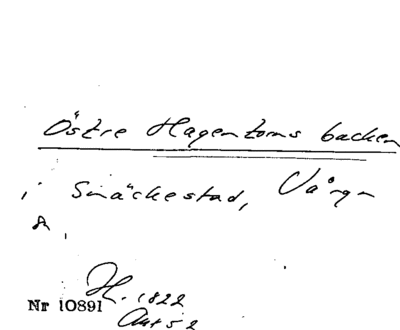 Östre Hagentorns backen
i Snäckestad, Vånga
A.
H. 1822
Akt 52
Nr 10891